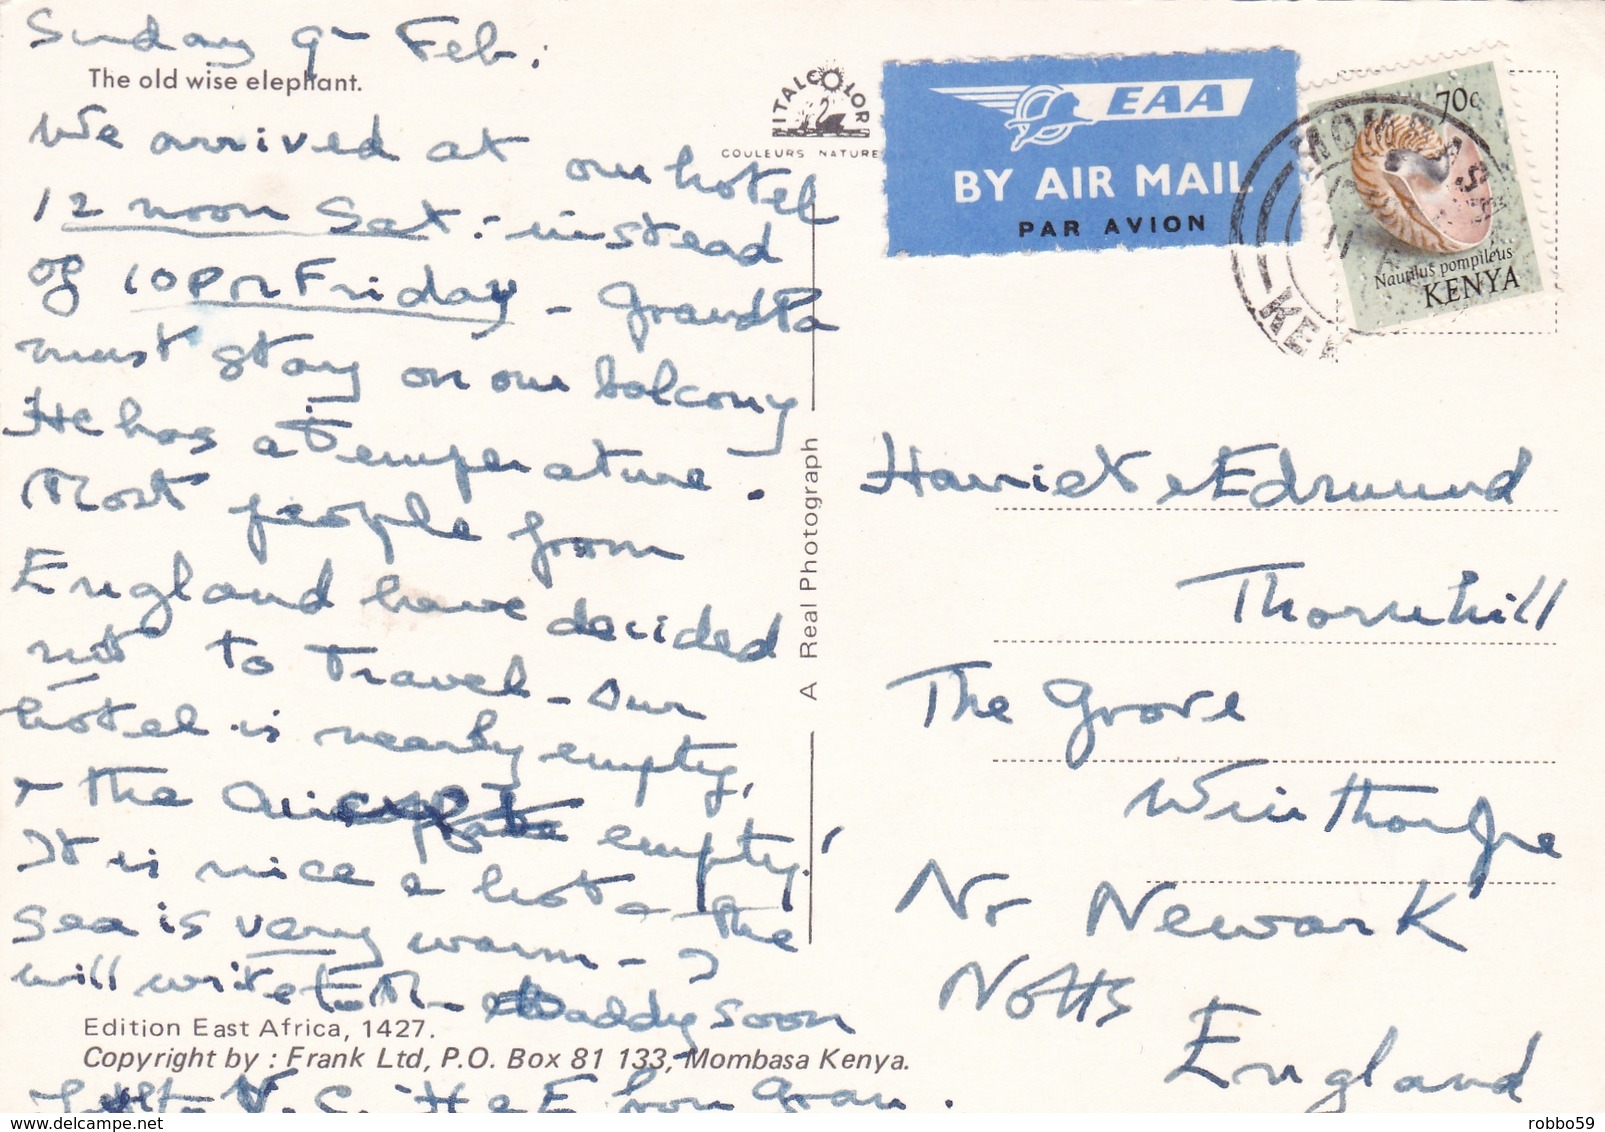 Sunday 9th Feb:
The old wise elephant.
We arrived at our hotel
12 noon Sat: instead
of 10pm Friday - Grandpa
must stay on our balcony
He has a Temperature.
Most people from
England have decided
not to Travel - our
hotel is nearly empty,
+ the aircraft empty!
It is nice & hot & the
sea is very warm - I
will write to Daddy soon
from Gran.
Edition East Africa, 1427.
Copyright by : Frank Ltd, P.O. Box 81 133, Mombasa Kenya.
A Real Photograph
ITALCOLOR
COULEURS NATURE
EAA
BY AIR MAIL
PAR AVION
70c
Nautilus pompileus
KENYA
MOMBASA
Harriet & Edmund
Thornhill
The Grove
Winthorpe
Nr Newark
Notts
England
www.delcampe.net
robbo59